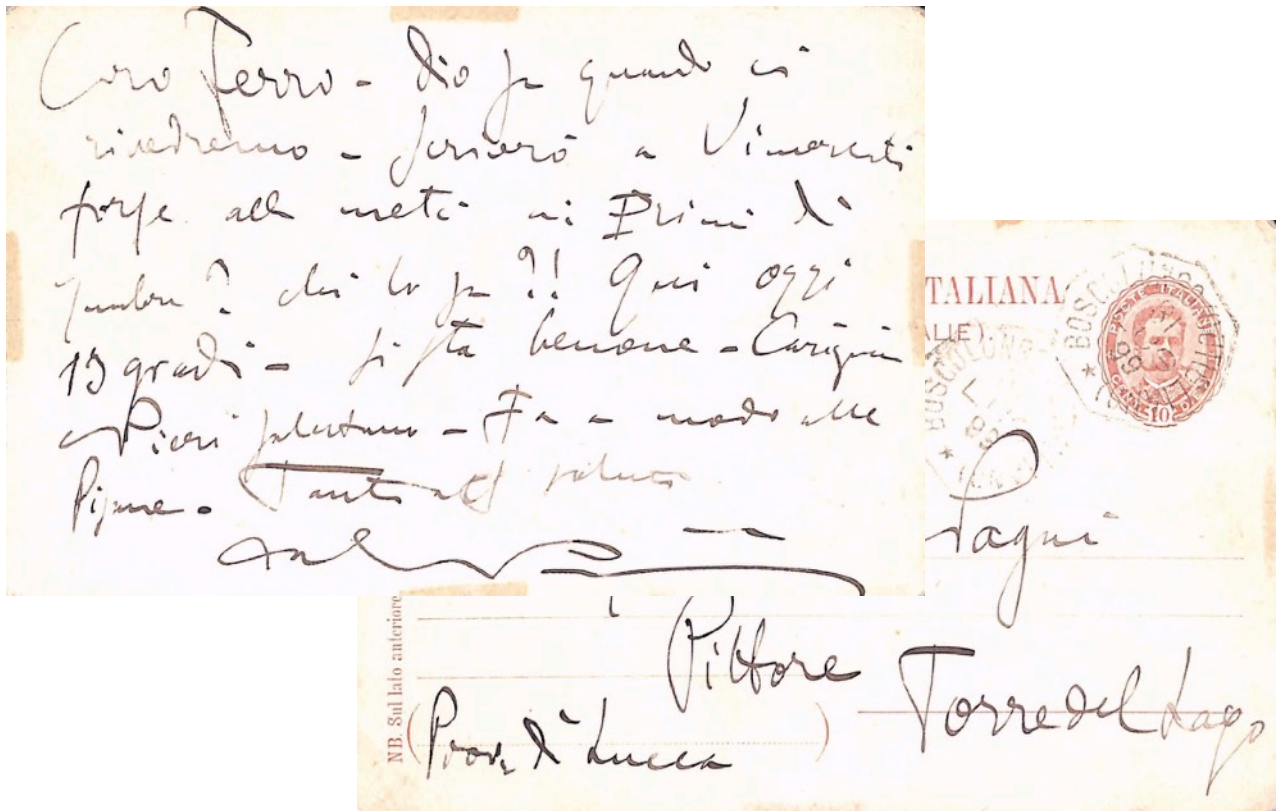 Caro Ferro - Dio sa quando ci
rivedremo - scriverò a
forse alla metà ai Primi di
? chi lo sa?! Qui oggi
13 gradi - si sta benone -
e Pieri salutano - Fa a modo alle
Pisane. Tanti saluti
TALIANA
ALLE)
BOSCOLUNGO
BOSCOLUNGO
POSTE ITALIANE
CENT. 10
99
Pagni
Pittore
Torre del Lago
(Prov. di Lucca)
NB. Sul lato anteriore